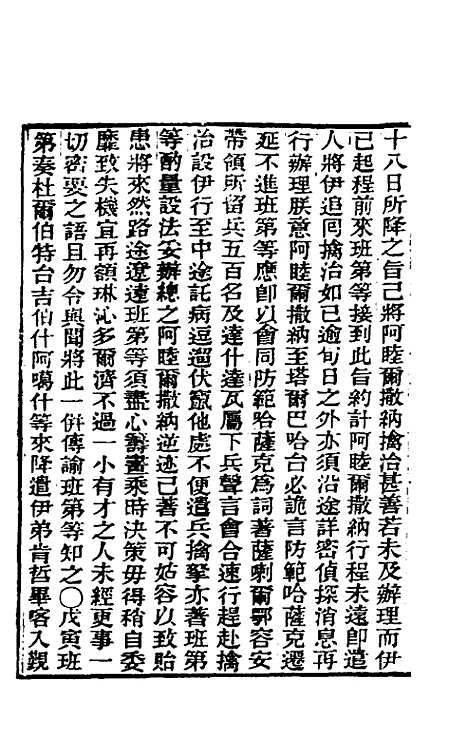 十八日所降之旨已將阿睦爾撒納擒治甚善若未及辦理而伊
已起程前來班第等接到此旨約計阿睦爾撒納行程未遠即遣
人將伊追回擒治如已逾旬日之外亦須沿途詳密偵探消息再
行辦理朕意阿睦爾撒納至塔爾巴哈台必詭言防範哈薩克遷
延不進班第等應即以會同防範哈薩克為詞著薩喇爾鄂容安
帶領所留兵五百名及達什達瓦屬下兵聲言會合速行趕赴擒
治設伊行至中途託病逗遛伏竄他處不便遣兵擒拏亦著班第
等酌量設法妥辦總之阿睦爾撒納逆迹已著不可姑容以致貽
患將來然路途遼遠班第等須盡心籌畫乘時決策毋得稍自委
靡致失機宜再額琳沁多爾濟不過一小有才之人未經更事一
切密要之語且勿令與聞將此一併傳諭班第等知之〇戊寅班
第奏杜爾伯特台吉伯什阿噶什等來降遣伊弟肯哲畢客入覲